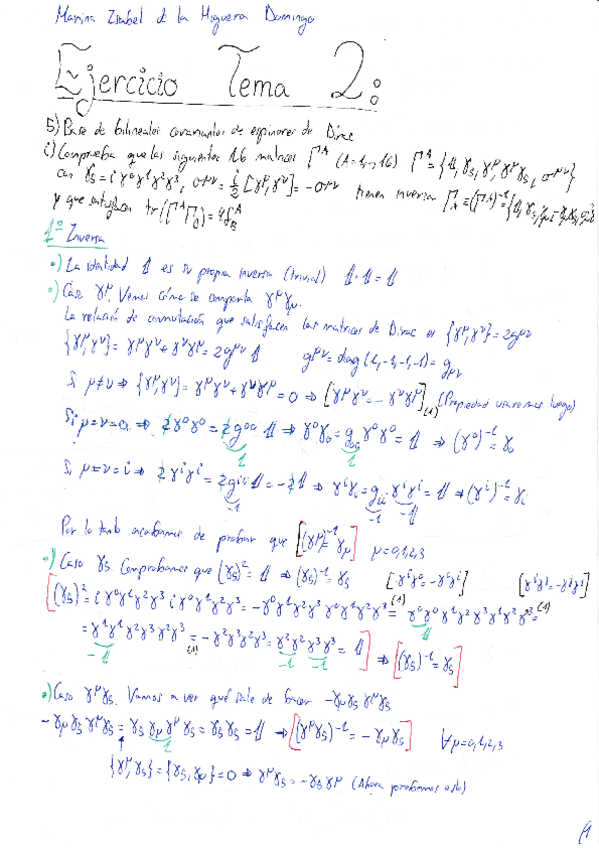 Marina Isabel de la Higuera Domingo
Ejercicio Tema 2:
5) Base de bilineales covariantes de espinores de Dirac
i) Comprueba que las siguientes 16 matrices Γ^A (A=1,...,16) Γ^A = {𝟙, γ₅, γ^μ, γ^μγ₅, σ^μν}
con γ₅ = iγ⁰γ¹γ²γ³, σ^μν = i/2 [γ^μ, γ^ν] = -σ^νμ tienen inversa Γ_A = (Γ^A)⁻¹ = {𝟙, γ₅, γ_μ, -γ_μγ₅, σ_μν}
y que satisfacen tr(Γ^A Γ_B) = 4δ^A_B
1º Inversa
•) La identidad 𝟙 es su propia inversa (trivial) 𝟙·𝟙 = 𝟙
•) Caso γ^μ. Vemos cómo se comporta γ^μγ_μ.
La relación de conmutación que satisfacen las matrices de Dirac es {γ^μ, γ^ν} = 2g^μν
{γ^μ, γ^ν} = γ^μγ^ν + γ^νγ^μ = 2g^μν 𝟙 g^μν = diag(1,-1,-1,-1) = g_μν
Si μ≠ν ⇒ {γ^μ, γ^ν} = γ^μγ^ν + γ^νγ^μ = 0 ⇒ [γ^μγ^ν = -γ^νγ^μ] (1) (Propiedad usaremos luego)
Si μ=ν=0 ⇒ 2γ⁰γ⁰ = 2g⁰⁰ 𝟙 ⇒ γ⁰γ₀ = g₀₀ γ⁰γ⁰ = 𝟙 ⇒ (γ⁰)⁻¹ = γ₀
1 1
Si μ=ν=i ⇒ 2γ^iγ^i = 2g^ii 𝟙 = -2𝟙 ⇒ γ^iγ_i = g_ii γ^iγ^i = 𝟙 ⇒ (γ^i)⁻¹ = γ_i
-1 -1 -𝟙
Por lo tanto acabamos de probar que [(γ^μ)⁻¹ = γ_μ] μ=0,1,2,3
•) Caso γ₅ Comprobamos que (γ₅)² = 𝟙 ⇒ (γ₅)⁻¹ = γ₅ [γ^iγ⁰ = -γ⁰γ^i] [γ^iγ^j = -γ^jγ^i]
[(γ₅)² = iγ⁰γ¹γ²γ³ iγ⁰γ¹γ²γ³ = -γ⁰γ¹γ²γ³γ⁰γ¹γ²γ³ =(1) γ⁰γ⁰γ¹γ²γ³γ¹γ²γ³ =(1)
𝟙
= γ¹γ¹γ²γ³γ²γ³ = -γ²γ³γ²γ³ = γ²γ²γ³γ³ = 𝟙] ⇒ [(γ₅)⁻¹ = γ₅]
-𝟙 (1) -1 -1
•) Caso γ^μγ₅. Vamos a ver qué sale de hacer -γ_μγ₅γ^μγ₅
-γ_μγ₅γ^μγ₅ = γ₅γ_μγ^μγ₅ = γ₅γ₅ = 𝟙 ⇒ [(γ^μγ₅)⁻¹ = -γ_μγ₅] ∀μ=0,1,2,3
1
{γ^μ, γ₅} = {γ₅, γ_μ} = 0 ⇒ γ^μγ₅ = -γ₅γ^μ (Ahora probamos esto)